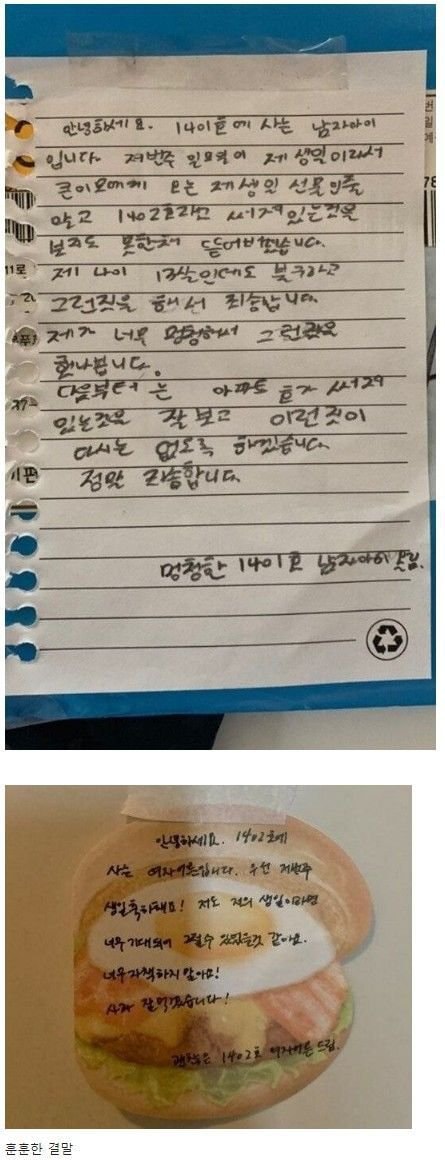 안녕하세요. 1401호에 사는 남자아이
입니다. 저번주 일요일이 제 생일이라서
큰이모에게 오는 제 생일 선물인줄
알고 1402호라고 써져있는것을
보지도 못한채 뜯어버렸습니다.
제 나이 13살인데도 불구하고
그런짓을 해서 죄송합니다.
제가 너무 멍청해서
했나봅니다.
다음부터는 아파트 호가 써져
있는것을 잘 보고 이런것이
다시는 없도록 하겠습니다.
정말 죄송합니다.
멍청한 1401호 남자아이 올림.
안녕하세요. 1402호에
사는 여자어른입니다. 우선 저번주
생일축하해요! 저도 저의 생일이라면
너무 기대되어 그럴수 있었을것 같아요.
너무 자책하지 말아요!
사과 잘 먹겠습니다!
괜찮은 1402호 여자어른 드림.
훈훈한 결말